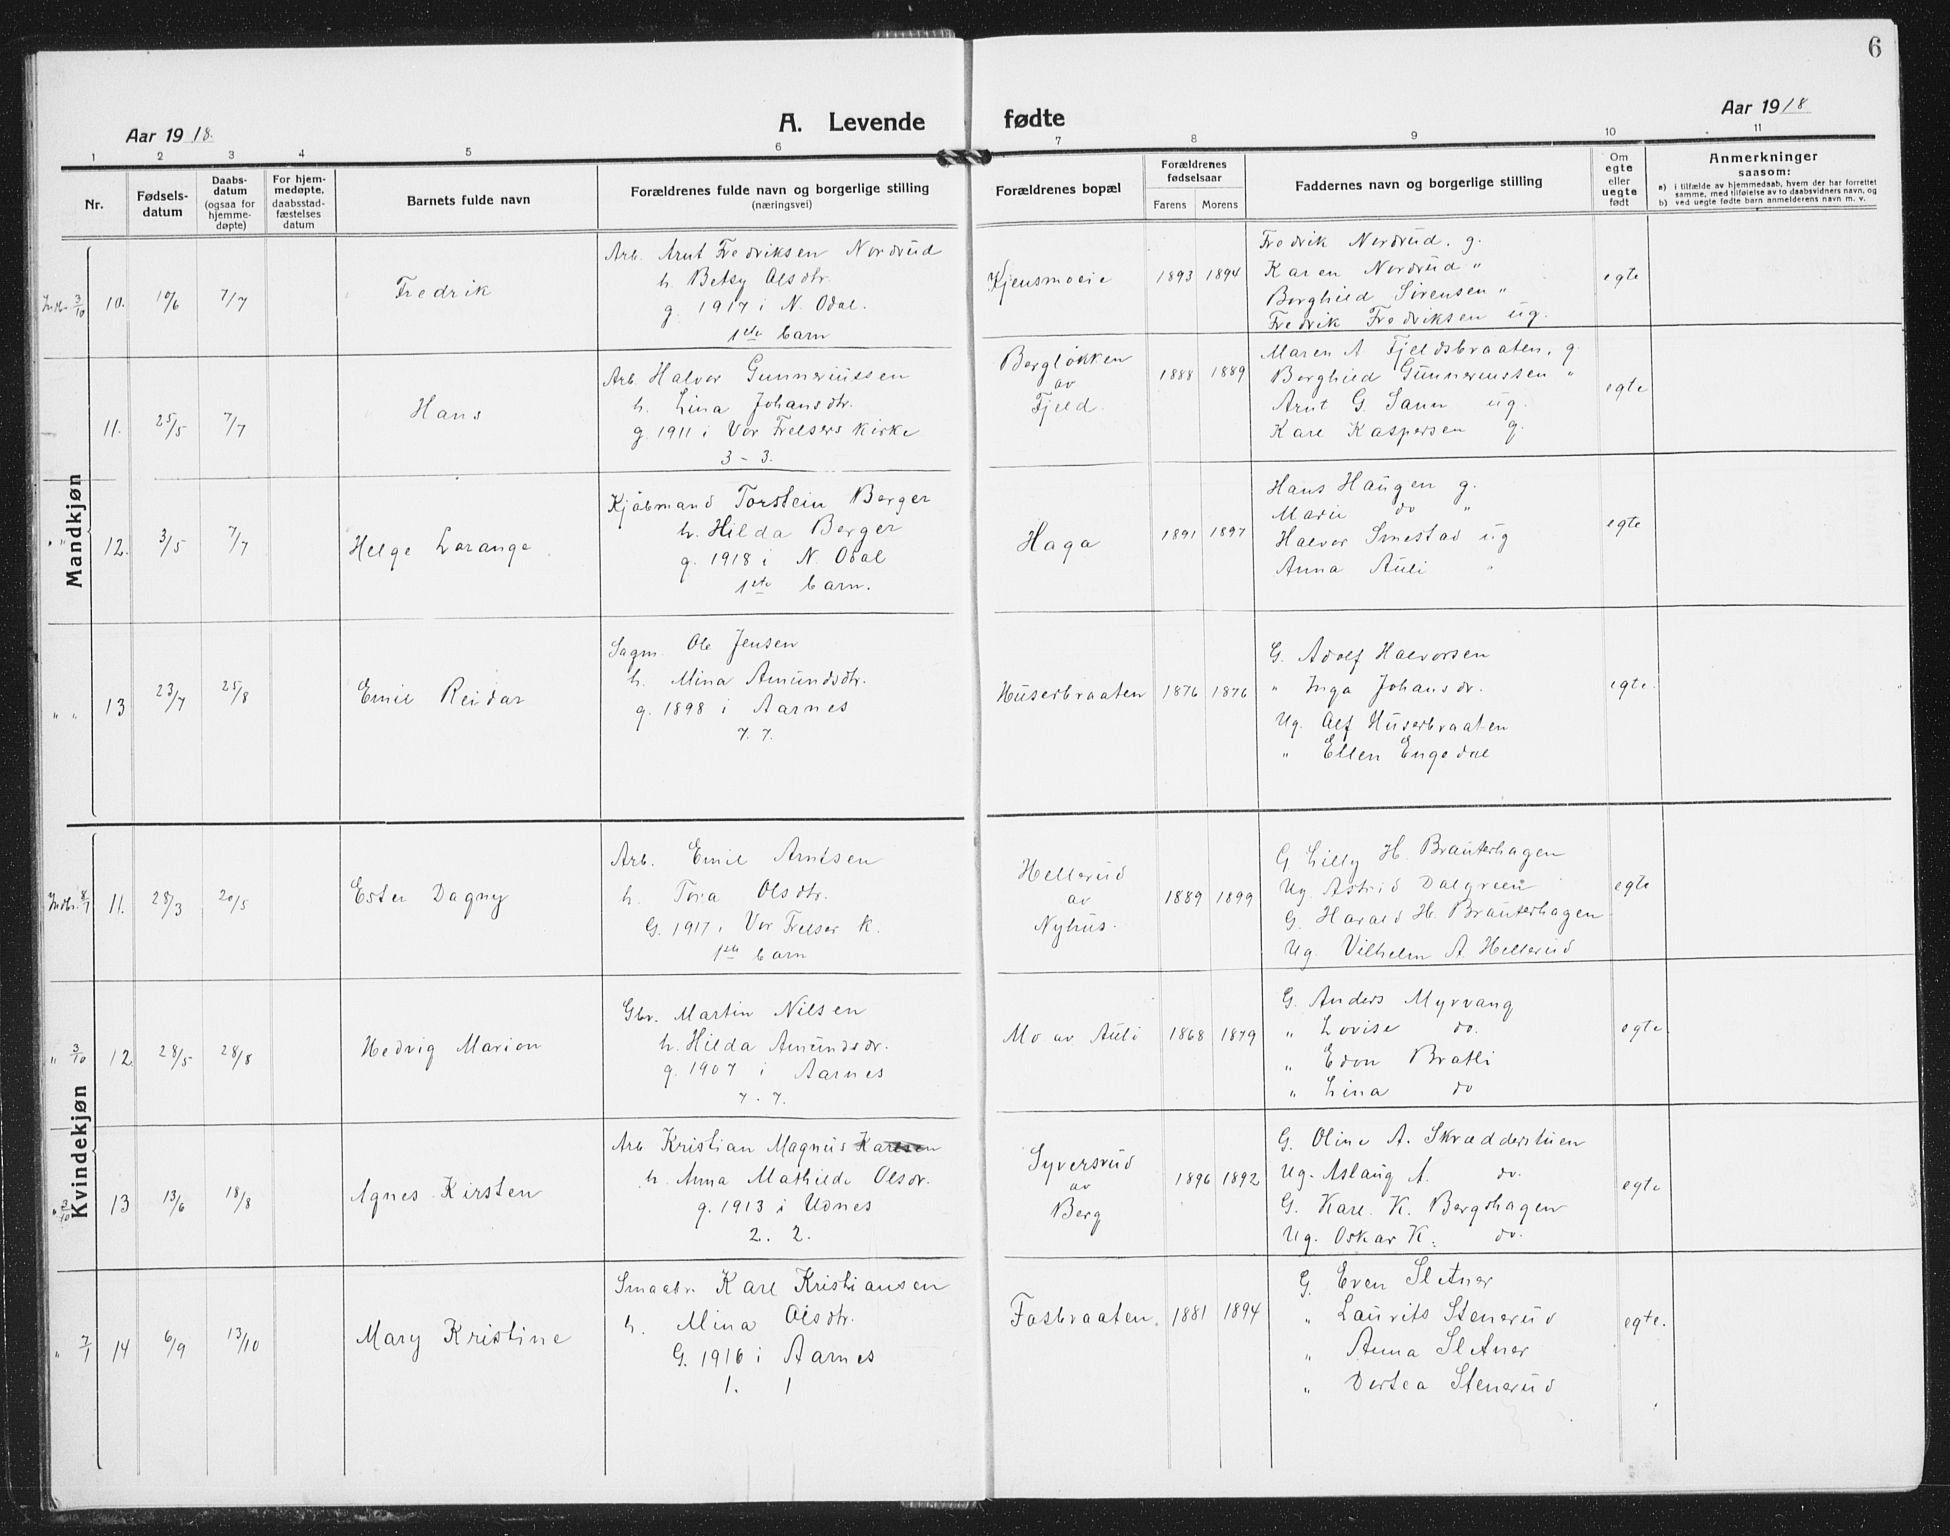 6
Aar 1918.
A. Levende fødte
Aar 1918
1 2 3 4 5 6 7 8 9 10 11
Nr.
Fødsels-
datum
Daabs-
datum
(ogsaa for
hjemme-
døpte)
For hjem-
medøpte,
daabsstad-
fæstelses
datum
Barnets fulde navn
Forældrenes fulde navn og borgerlige stilling
(næringsvei)
Forældrenes bopæl
Forældrenes
fødselsaar
Farens Morens
Faddernes navn og borgerlige stilling
Om
egte
eller
uegte
født
Anmerkninger
saasom:
a) i tilfælde av hjemmedaab, hvem der har forrettet
samme, med tilføielse av to daabsvidners navn, og
b) ved uegte fødte barn anmelderens navn m. v.
Mandkjøn
Indb. 3/10 10. 10/6 7/7 Fredrik
Arb. Arnt Fredriksen Nordrud
h. Betsy Olsdtr.
g. 1917 i N. Odal.
1ste barn
Kjensmoeie 1893 1894
Fredrik Nordrud. g.
Karen Nordrud "
Borghild Sørensen "
Fredrik Fredriksen ug.
egte
11. 25/5 7/7 Hans
Arb. Halvor Gunneriussen
h. Lina Johansdtr.
g. 1911 i Vor Frelsers Kirke
3 - 3.
Bergløkken
av
Fjeld.
1888 1889
Maren A Fjeldsbraaten. g.
Borghild Gunneriussen "
Arnt G. Sann ug.
Karl Kaspersen g.
egte
" " 12. 3/5 7/7 Helge Lorange
Kjøbmand Torstein Berger
h. Hilda Berger
g. 1918 i N. Odal
1ste barn.
Haga 1891 1897
Hans Haugen g.
Marie do "
Halvor Smestad ug
Anna Auli "
egte
" " 13 23/7 25/8 Emil Reidar
Sagm. Ole Jensen
h. Mina Amundsdtr.
g. 1898 i Aarnes
7. 7.
Huserbraaten 1876 1876
G. Adolf Halvorsen
" Inga Johansdr.
Ug. Alf Huserbraaten
" Ellen Engedal
egte.
Kvindekjøn
Indb. 8/7 11. 28/3 20/5 Ester Dagny
Arb. Emil Arntsen
h. Tora Olsdtr.
G. 1917 i Vor Frelser K.
1ste barn
Hellerud
av
Nyhus.
1889 1899
G Lilly H. Brauterhagen
Ug. Astrid Dalgreen
G. Harald H. Brauterhagen
Ug. Vilhelm A. Hellerud
egte
" 3/10 12. 28/5 28/8 Hedvig Marion
Gbr. Martin Nilsen
h. Hilda Amundsdr.
g. 1907 i Aarnes
7. 7.
Mo av Auli 1868 1879
G. Anders Myrvang
" Lovise do.
" Edon Bratli
" Lina do
egte.
" 3/10 13 13/6 18/8 Agnes Kirsten
Arb Kristian Magnus Karlsen
h. Anna Mathilde Olsdr.
g. 1913 i Udnes
2. 2.
Syversrud
av
Berg
1896 1892
G. Oline A. Skrædderstuen
Ug. Aslaug A. do.
G. Karl K. Bergshagen
Ug. Oskar K. do.
egte
" 7/1 14 6/9 13/10 Mary Kristine
Smaabr. Karl Kristiansen
h. Mina Olsdtr.
G. 1916 i Aarnes
1. 1
Fosbraaten. 1881 1894
G. Even Sletner
" Laurits Stenerud
" Anna Sletner
" Dortea Stenerud
egte.